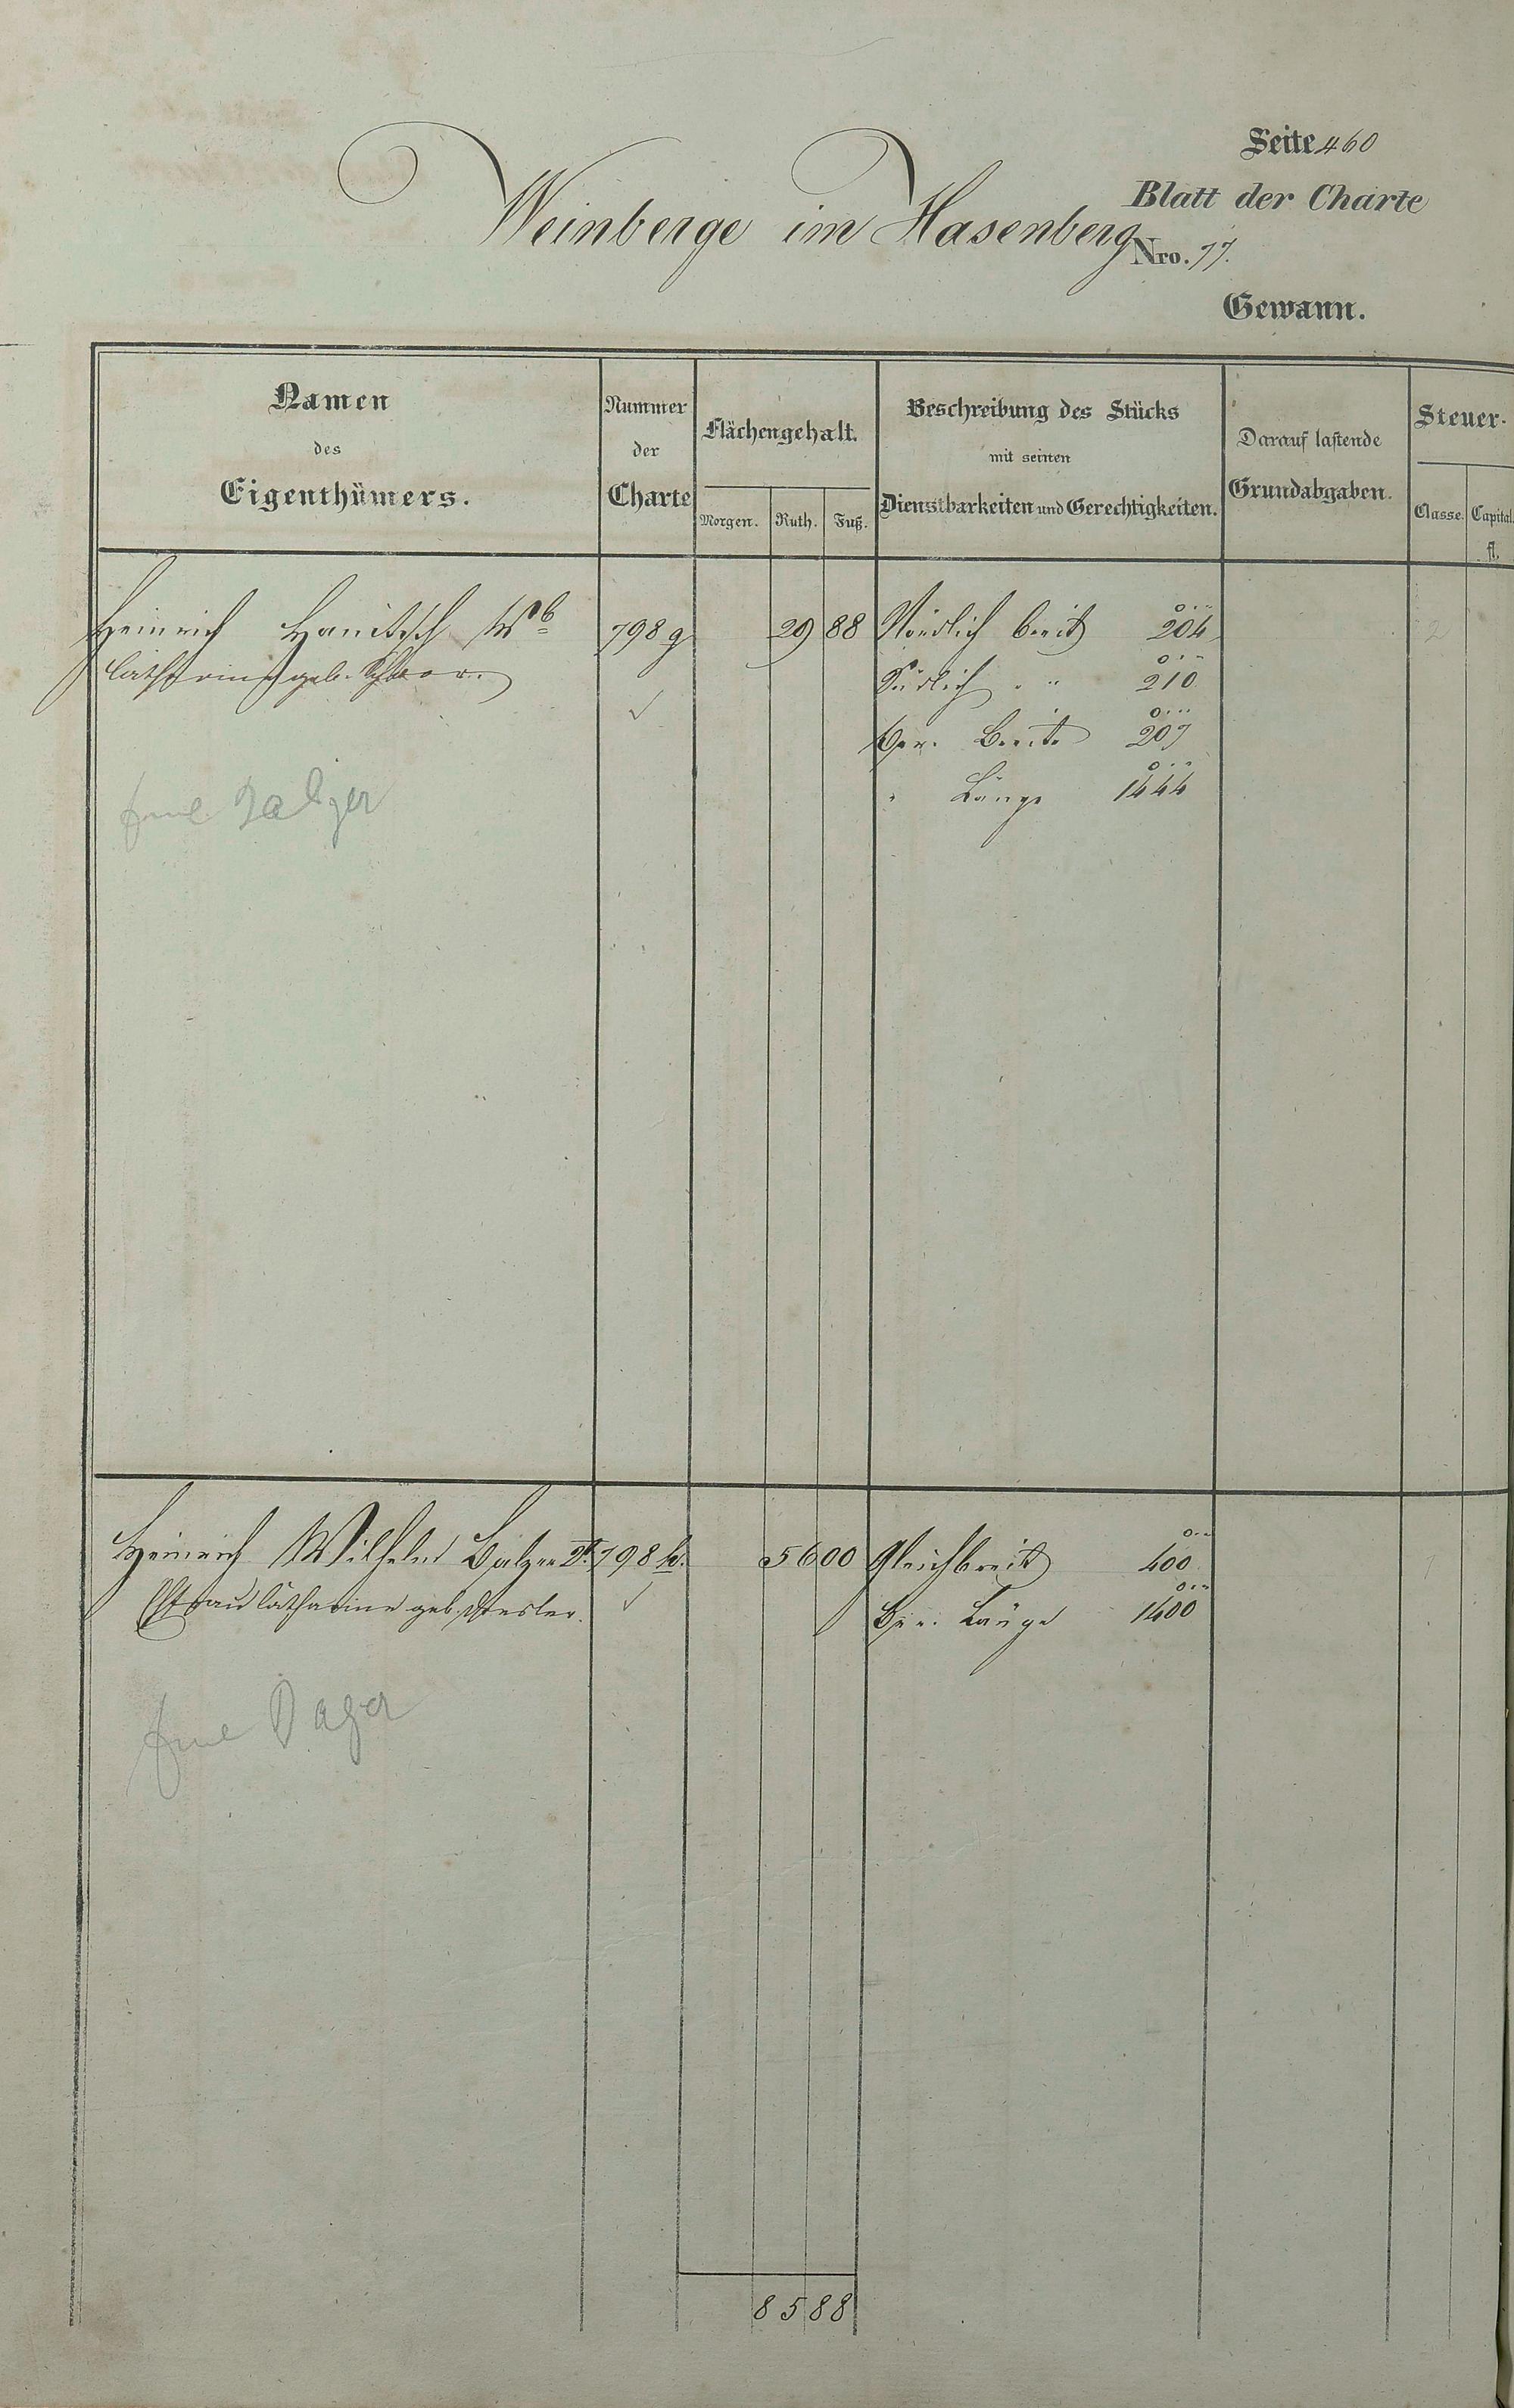 Seite 460
Blatt der Charte
Weinberge im Hasenberg Nro. 77.
Gewann.
Namen
des
Eigenthümers.
Nummer
der
Charte
Flächengehalt.
Morgen. Ruth. Fuß.
Beschreibung des Stücks
mit seinen
Dienstbarkeiten und Gerechtigkeiten.
Darauf lastende
Grundabgaben.
Steuer-
Classe. Capital.
fl.
Heinrich Hanitsch Wb 798 g 29 88 Nördlich breit 204
Catharina geb. Südlich " " 210
ger. Breite 207
" Länge 1444
2
Heinrich Wilhelm Balzer 2t. 798 h. 56 00 Gleichbreit 400
Ehefrau Catharine geb. ger. Länge 1400
1
85 88